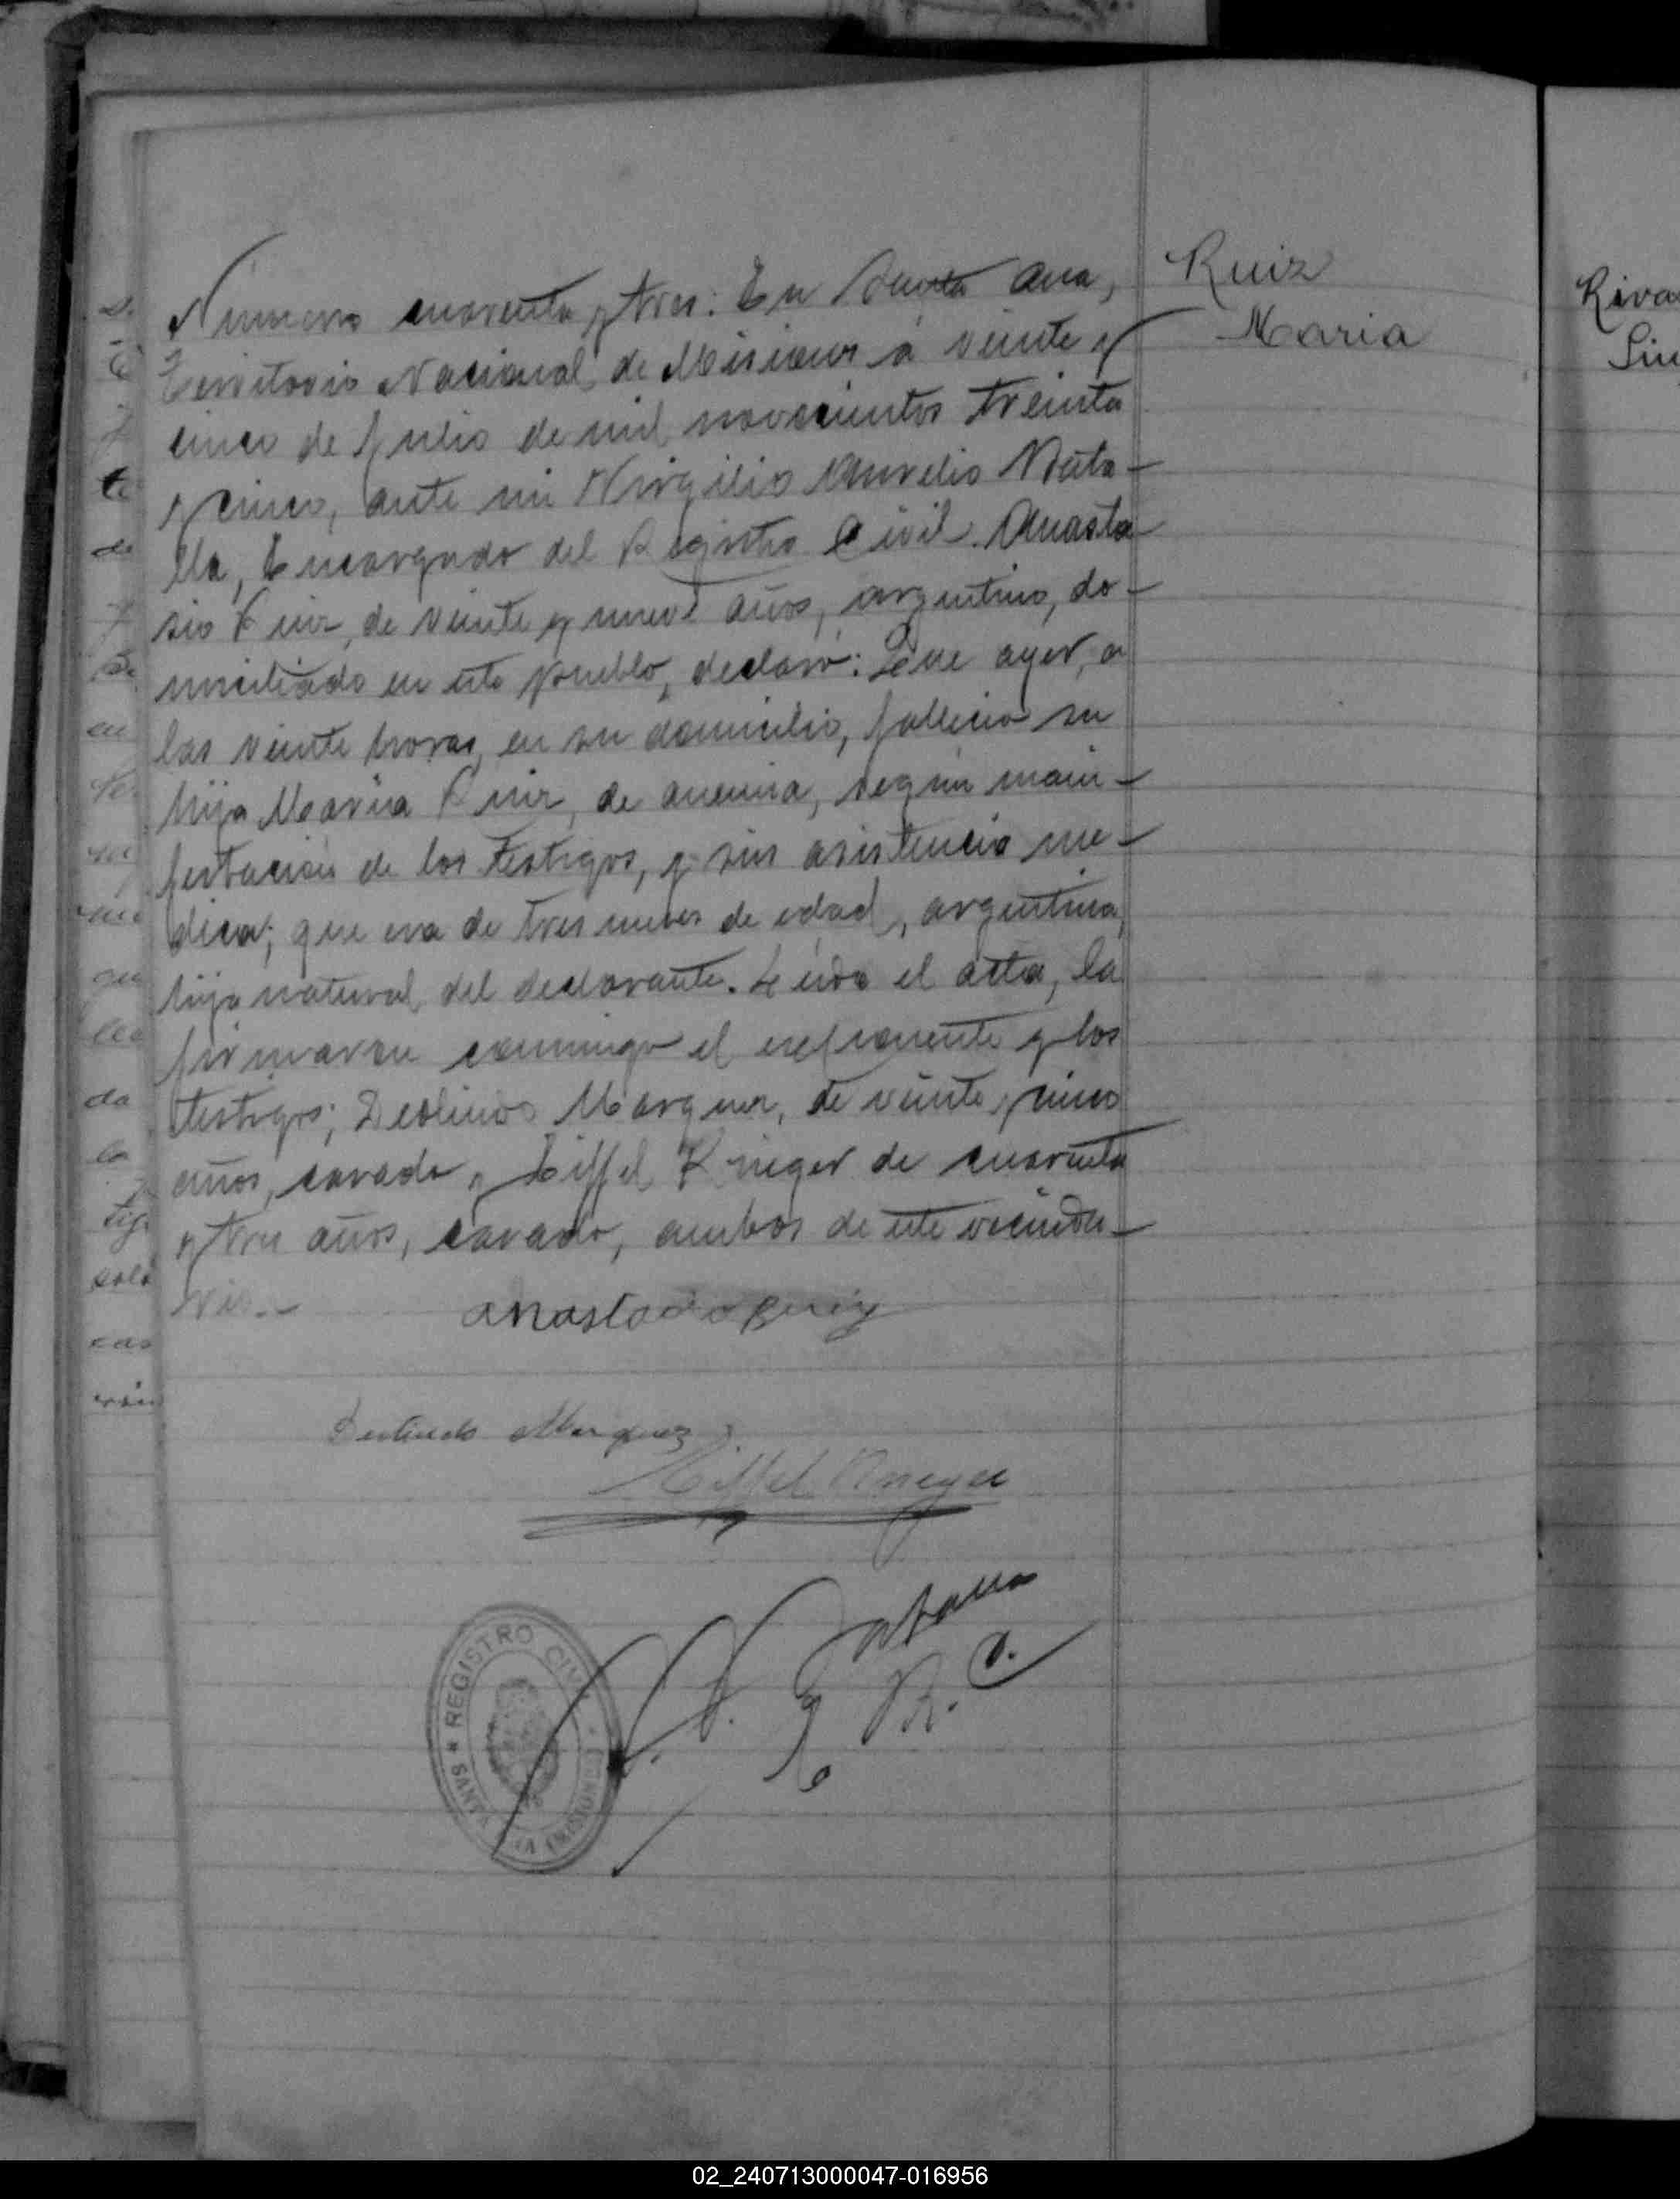 Ruiz
Maria
Número cuarenta y tres: En Santa Ana,
Territorio Nacional de Misiones á veinte y
cinco de Julio de mil novecientos treinta
y cinco, ante mi Virgilio Aurelio
lla, Encargado del Registro Civil. Anasta-
sio Ruiz, de veinte y nueve años, argentino, do-
miciliado en este pueblo, declaró: Que ayer, a
las veinte horas, en su domicilio, falleció su
hija María Ruiz, de anemia, según mani-
festación de los testigos, y sin asistencia me-
dica; que era de tres meses de edad, argentina,
hija natural del declarante. Leída el acta, la
firmaron conmigo el exponente y los
testigos; Marquez, de veinte y cinco
años, casado y Eiffel Krieger de cuarenta
y tres años, casado, ambos de este vecinda-
rio.-
Anastacio Ruiz
Marquez
Eiffel Krieger
E. R. C.
REGISTRO CIVIL
SANTA ANA (MISIONES)
Riva
02_240713000047-016956